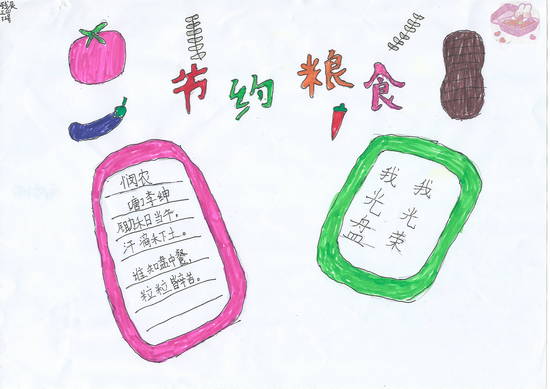 节约粮食
悯农
[唐]李绅
锄禾日当午。
汗滴禾下土。
谁知盘中餐,
粒粒皆辛苦。
我光盘
我光荣